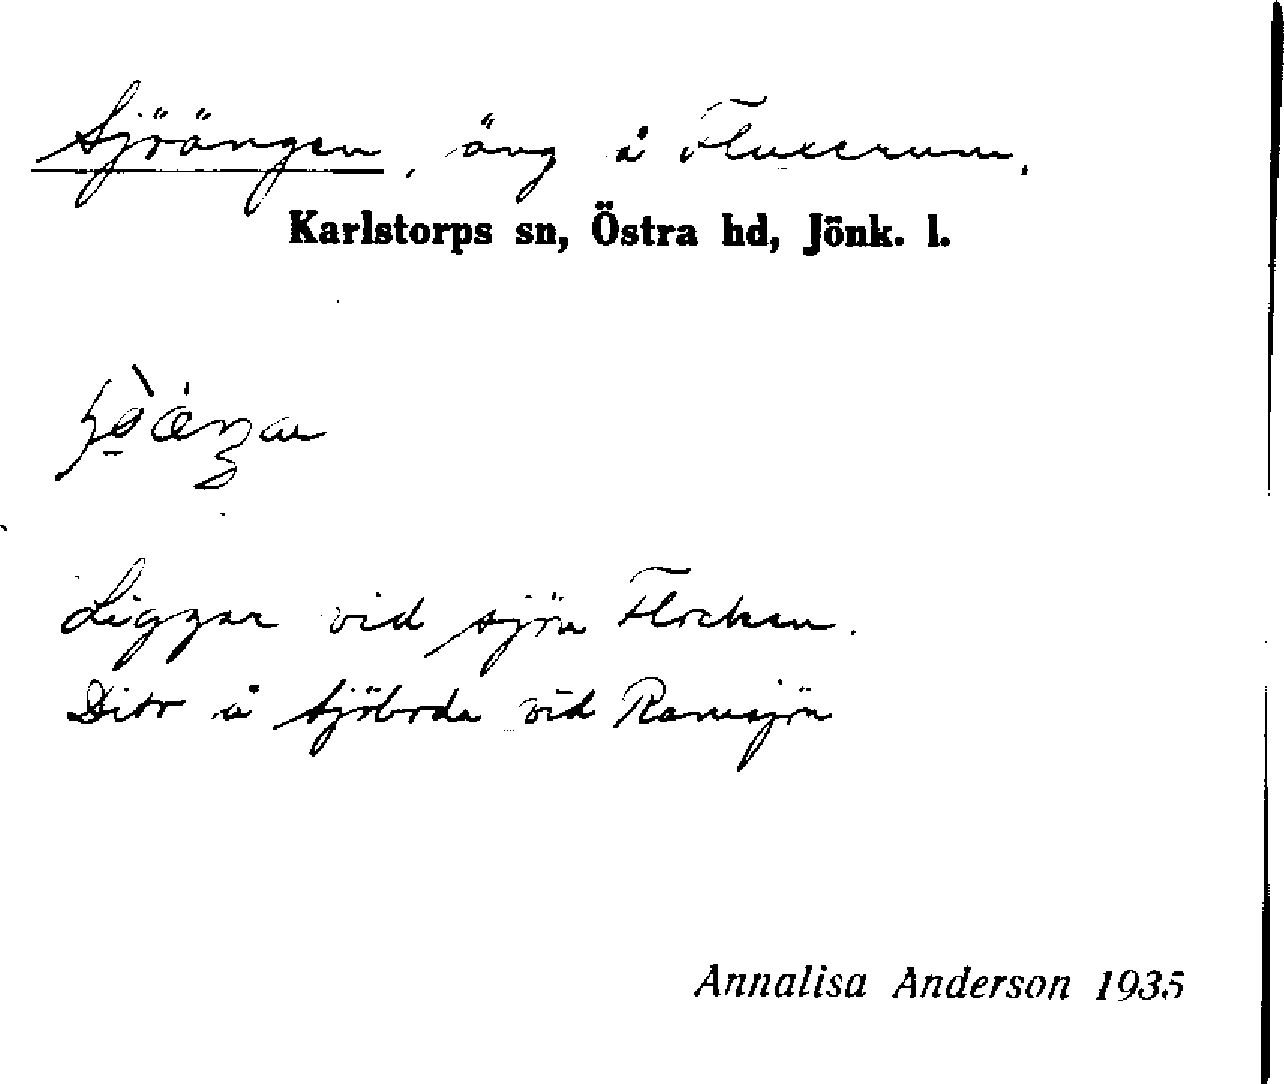 Sjöängen, äng å Fluxerum.
Karlstorps sn, Östra hd, Jönk. l.
Ligger vid sjön Flocken.
Dito å Sjöboda vid Ramsjön
Annalisa Anderson 1935